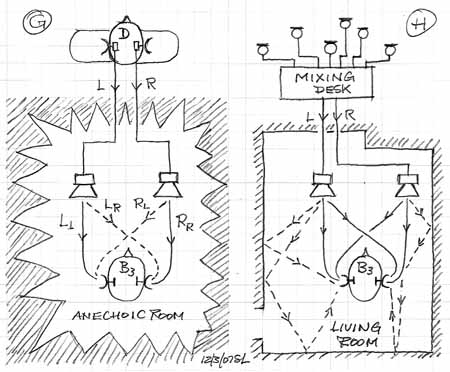 G
D
L R
L_R R_L
L_L R_R
B3
ANECHOIC ROOM
12/3/07 SL
H
MIXING
DESK
L R
B3
LIVING
ROOM